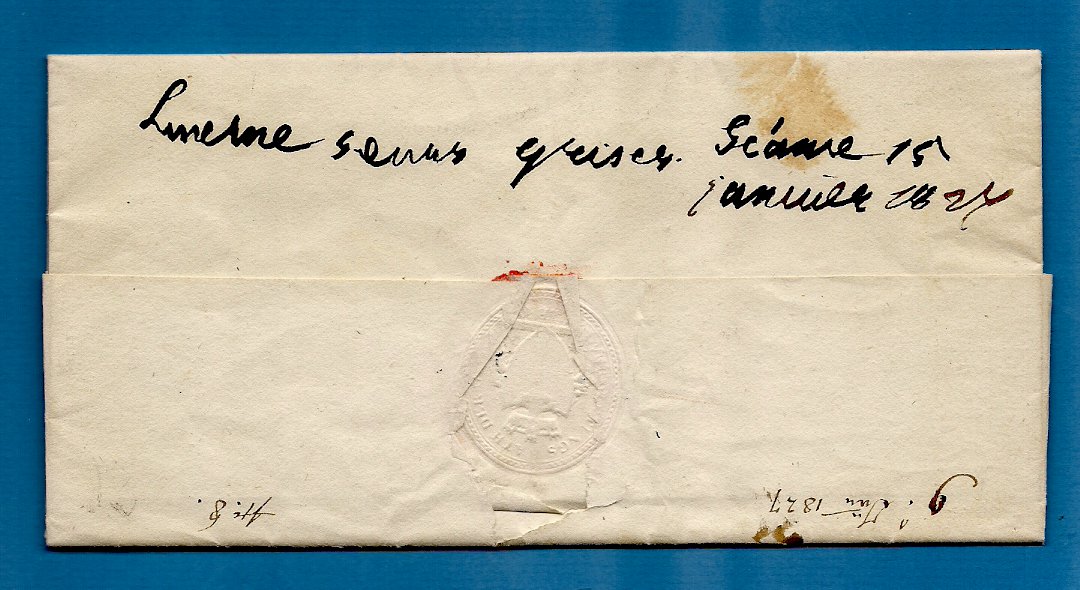 Lucerne sœurs grises. Séance 15
janvier 1827
9. Jan 1827